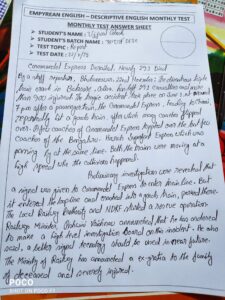 EMPYREAN ENGLISH – DESCRIPTIVE ENGLISH MONTHLY TEST
MONTHLY TEST ANSWER SHEET
STUDENT'S NAME :
STUDENT'S BATCH NAME :
TEST TOPIC : Report
TEST DATE :
Coromandel Express Derailed: Nearly 291 Died
By a staff reporter, Bhubaneswar, 22nd November: The disastrous high
train crash in Balasore, Odisha has left 291 casualties and more
than 900 injured. The tragic accident took place on June 2 at around
7 pm after a passenger train, the Coromandel Express, heading to Chennai
reportedly hit a goods train, after which many coaches flipped
over. Three coaches of Coromandel Express toppled and the last few
coaches of the Bengaluru Howrah Superfast Express which was
passing by at the same time. Both the trains were moving at a
high speed when the collision happened.
Preliminary investigation has revealed that
a signal was given to Coromandel Express to enter main line. But
it entered the loop line and crashed into a goods train, parked there.
The Local Railway Authority and NDRF started a rescue operation.
Railways Minister, Ashwini Vaishnaw announced that he has ordered
to make a high level investigation board on this incident. He also
said, a better signal technology should be used in near future.
The Ministry of Railway has announced a ex-gratia to the family
of deceased and severely injured.
POCO
SHOT ON POCO